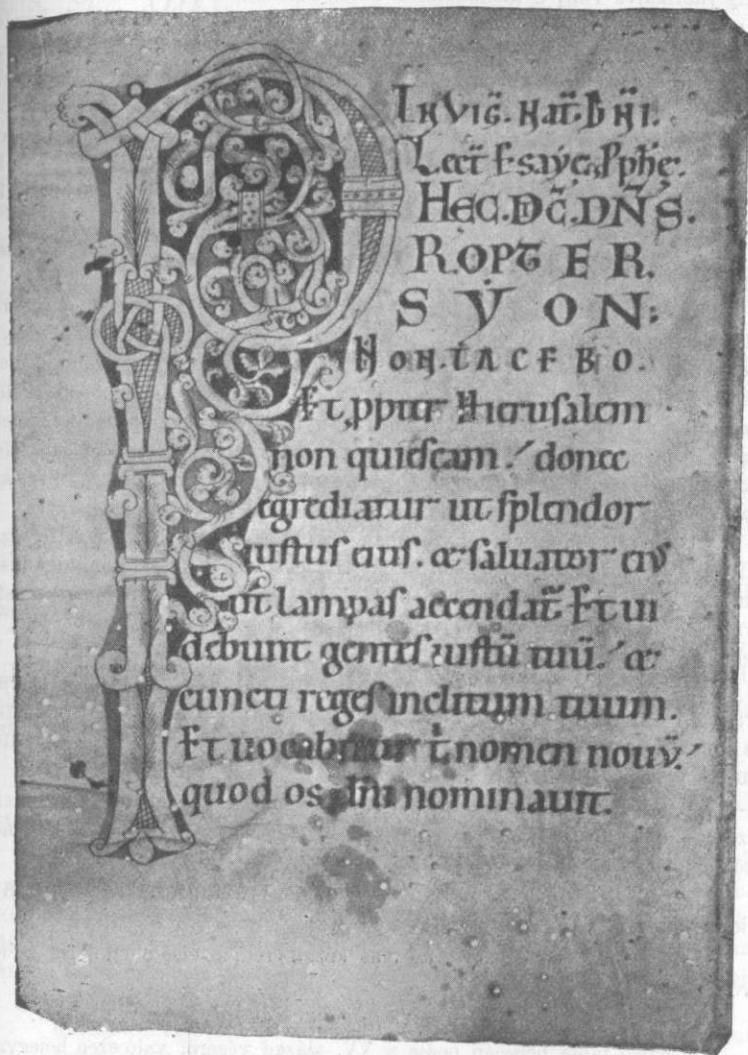 IN VIG̃. NAT̃. DÑI.
Lect̃ Esaỹe pphẽ.
HEC. DC̃. DÑS.
PROPTER.
SYON:
NON. TACEBO.
Et ꝓpter Hierusalem
non quiescam. donec
egrediatur ut splendor
iustus eius. & saluator ei9
ut lampas accendat̃. Et ui
debunt gentes iustũ tuũ. &
cuncti reges inclitum tuum.
Et uocabitur t̃ nomen nouũ.
quod os dñi nominauit.